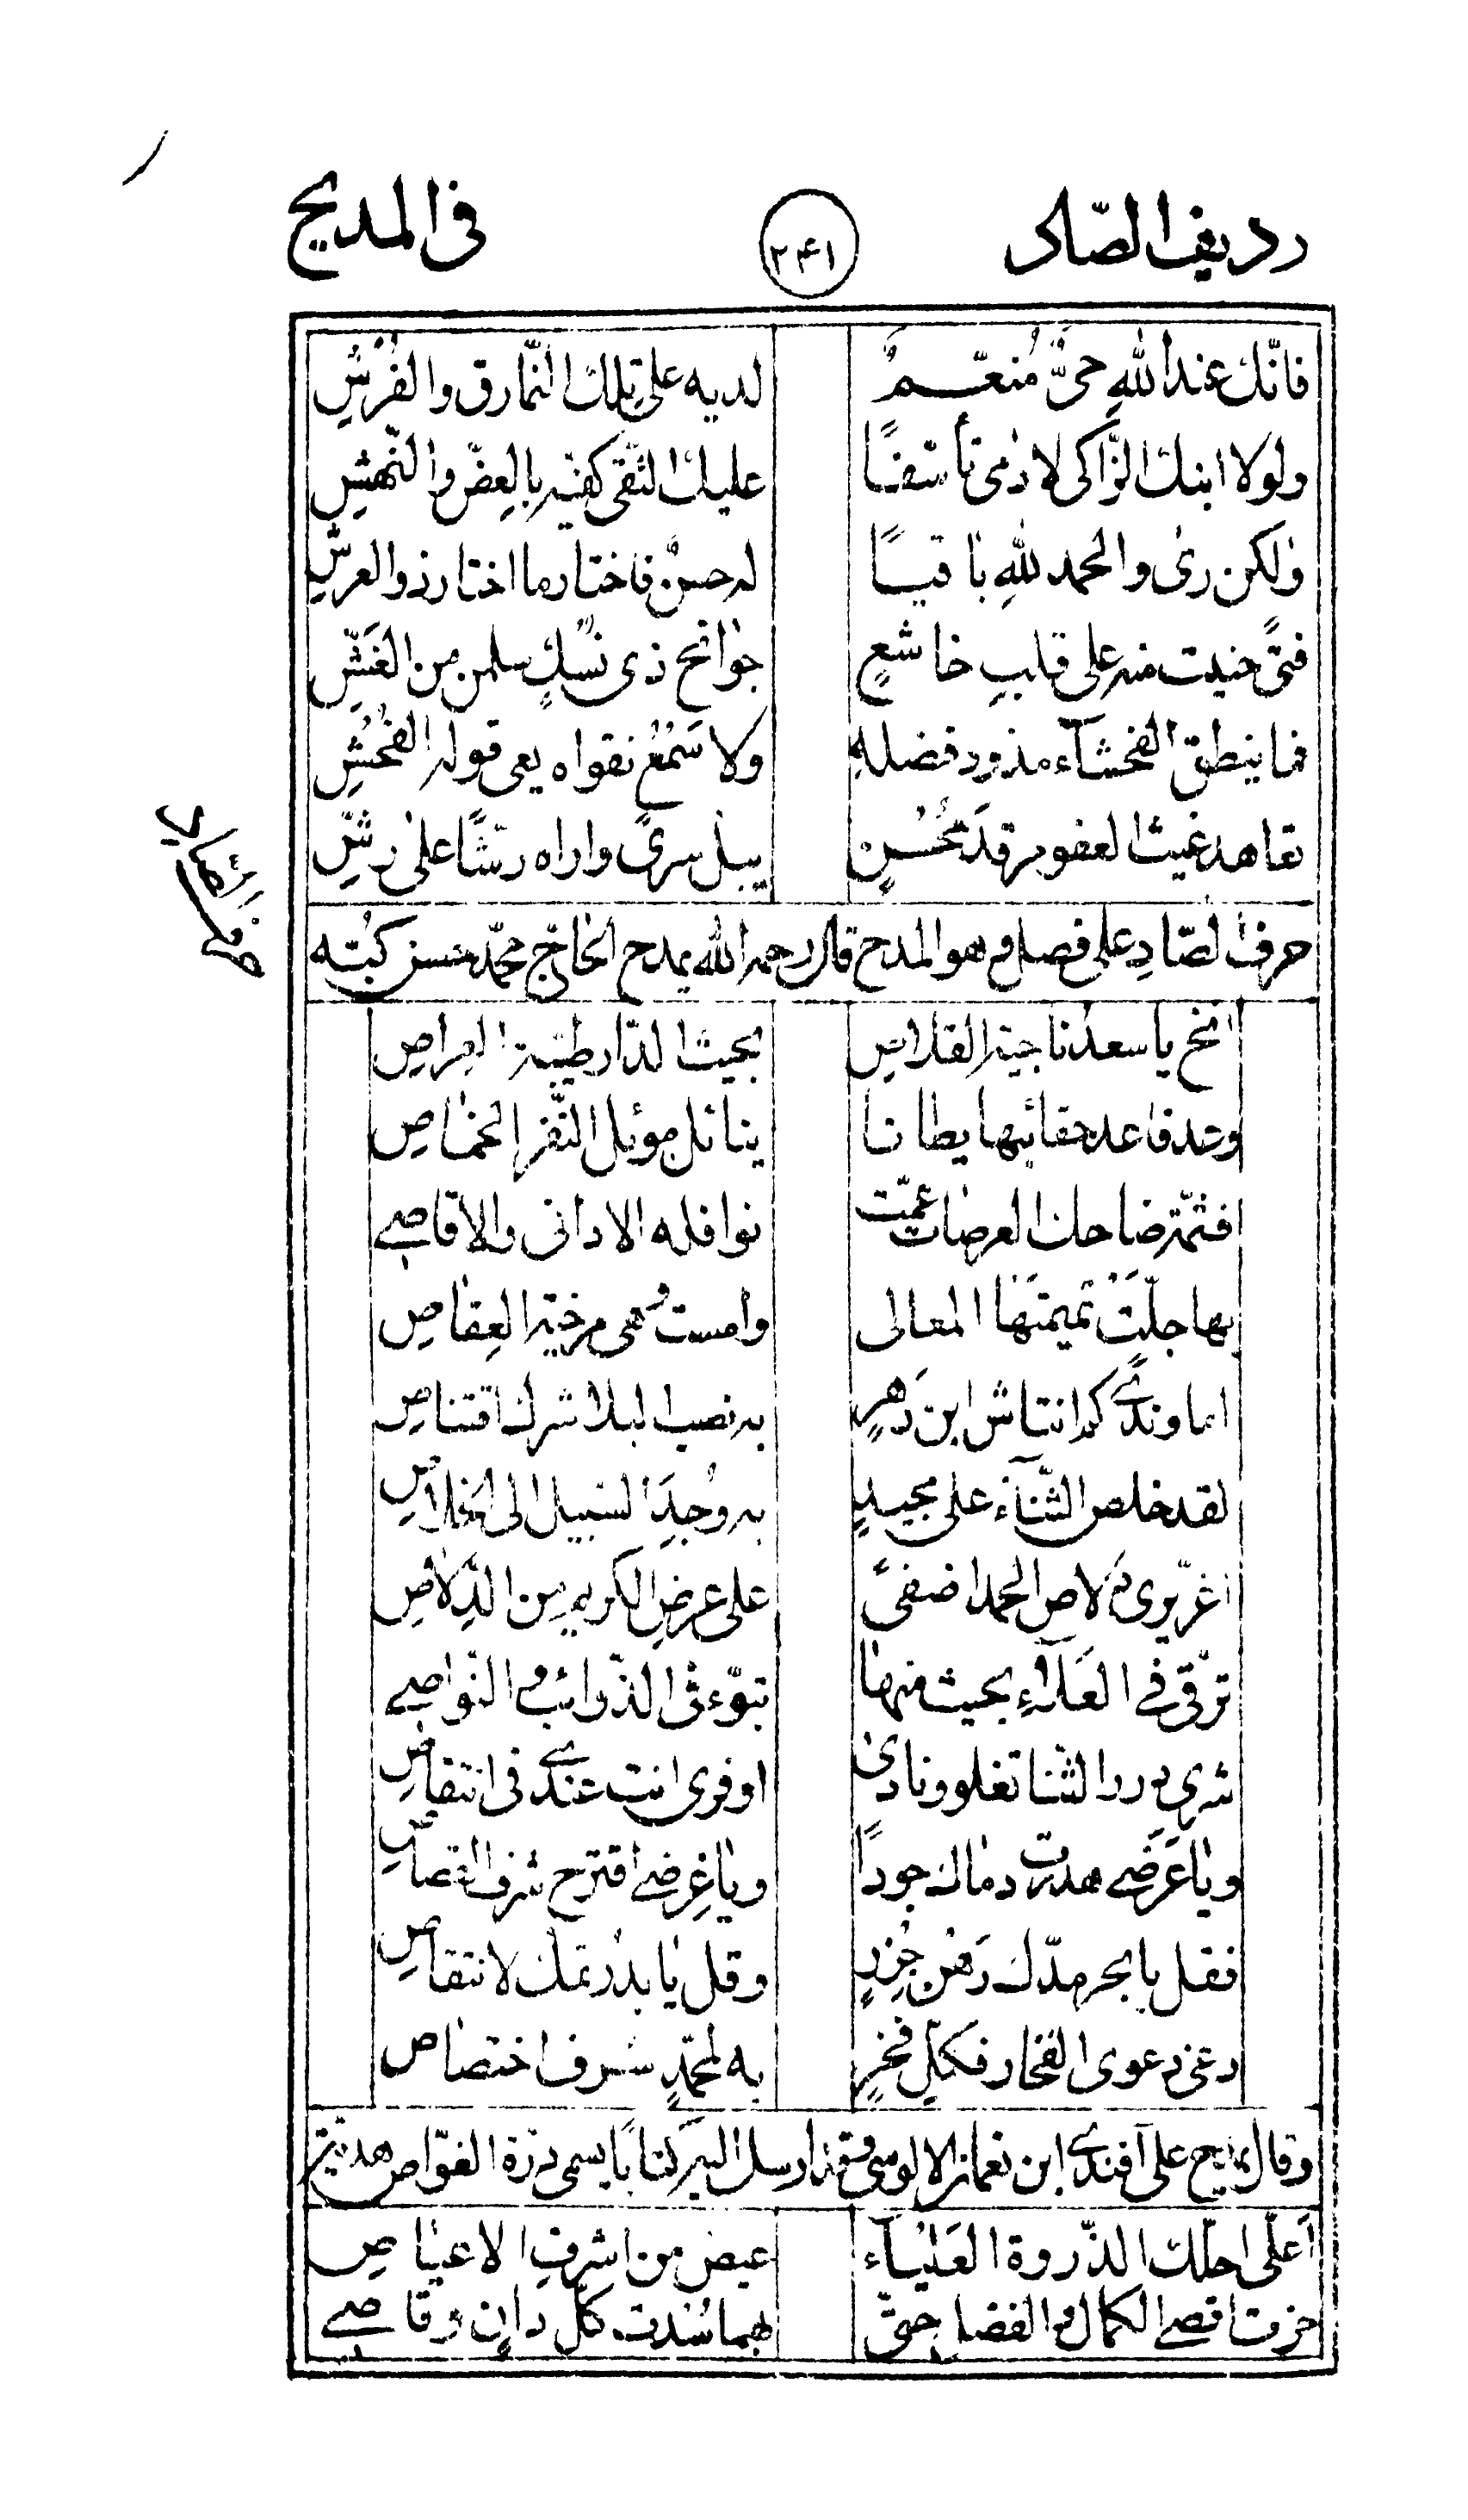 رديف الصّاد ٢٤١ فى المديح
فانّك عند اللهِ حىٌّ مُنعّمٌ لديه على تلك النّمارق والفُرُشِ
ولولا ابنك الزّاكى لادمى تأسّفًا عليك التّقى كفّيه بالعضّ والنّهشِ
ولكن رىٰ والحمد للهِ باقيًا له حسنٌ فاختار ما اختار ذو العرشِ
فتىً حنيت منه على قلبٍ خاشعٍ جوانح ذى نُسُكٍ سلمن من الغشِّ
فما ينطق الفحشآء مذود فضلهِ ولا سَمْعُ تقواه يعى قوله الفُحُشِ
تعاهد غيث العفو مرقد مُحْسِنٍ يبلّ سرىً واراه رشًّا على رشِّ
حرف الصّاد
حرف الصّادِ على فصل وهو المدح قال رحمه الله يمدح الحاجّ محمّد حسن كُبّه
انخ يا سعد ناجية القلاصِ بحيث الدّار طيّبة العِراصِ
وعد فاعد حقائبها بطانا بنائل موئل النّفر الخماصِ
فثمّة ضاحك العرصات عمّت نوافله الادانى والاقاصى
بها جلّت تميمتها المعالى وامست وهى مرخية العِقاصِ
اما وندىً كم انتاش ابن دَهرٍ به نصب البلا شرك اقتناصِ
لقد خلص الثّنآء على مجيدٍ به وُجِدَ السّبيل الى الخلاصِ
اغرّ يرى دلاص الحمد اضفىً على عرضِ الكريم من الدِّلاصِ
ترقّى فى العَلآءِ بحيث منها تبوّء فى الذّوائب والنّواصى
شرى برد الثّنا تغلو ونادىٰ اوفرى انت عندى فى انتقاصِ
ويا عَرَضى هدرت دماك جودًا ويا عِرضى اقترح شرف القصاصِ
فقل يا بحر مدّك رَهْن جُزرٍ وقل يا بدر تمّك لانتقاصِ
دعى دعوى الفخار فكلّ فخرٍ به لمحمّدٍ شرف اختصاص
وقال يمدح على آفندى ابن نعمان الالوسى وقد ارسل اليه كتابًا يسمى درّة الغوّاص هديّة
أعلىّ احلّك الذّروة العَليآء عيص من اشرفِ الاعياصِ
حزت اقصى الكمال والفضل حتّى بهما سُدت كلّ دانٍ وقاصى